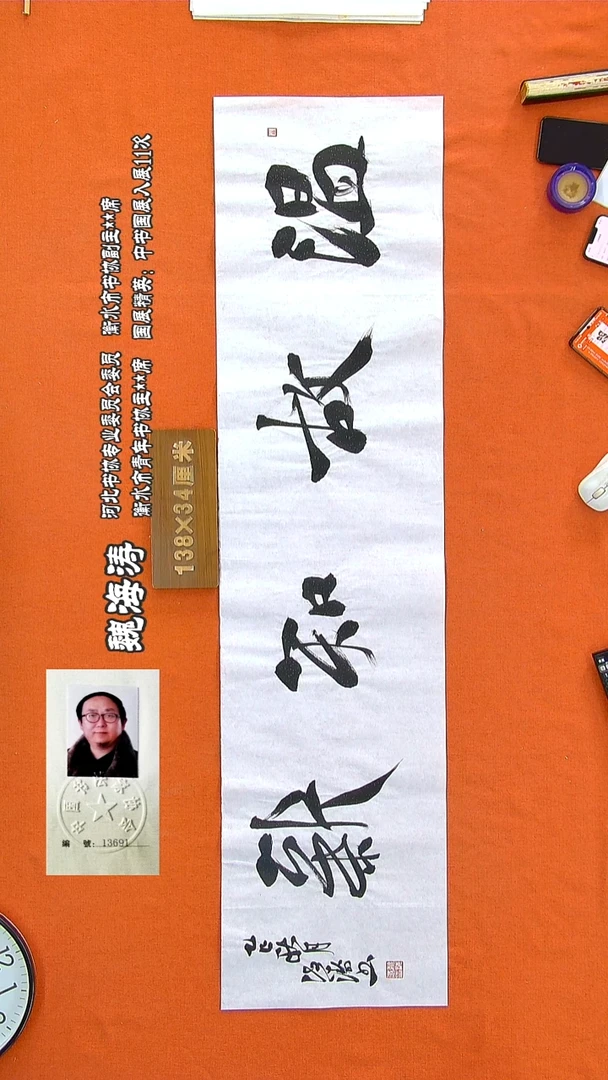 温故知新
魏海涛
河北书协专业委员会委员 衡水市书协副主**席
衡水市青年书协主**席 国展精英：中书国展入展11次
138×34厘米
編 號：13691
12
1